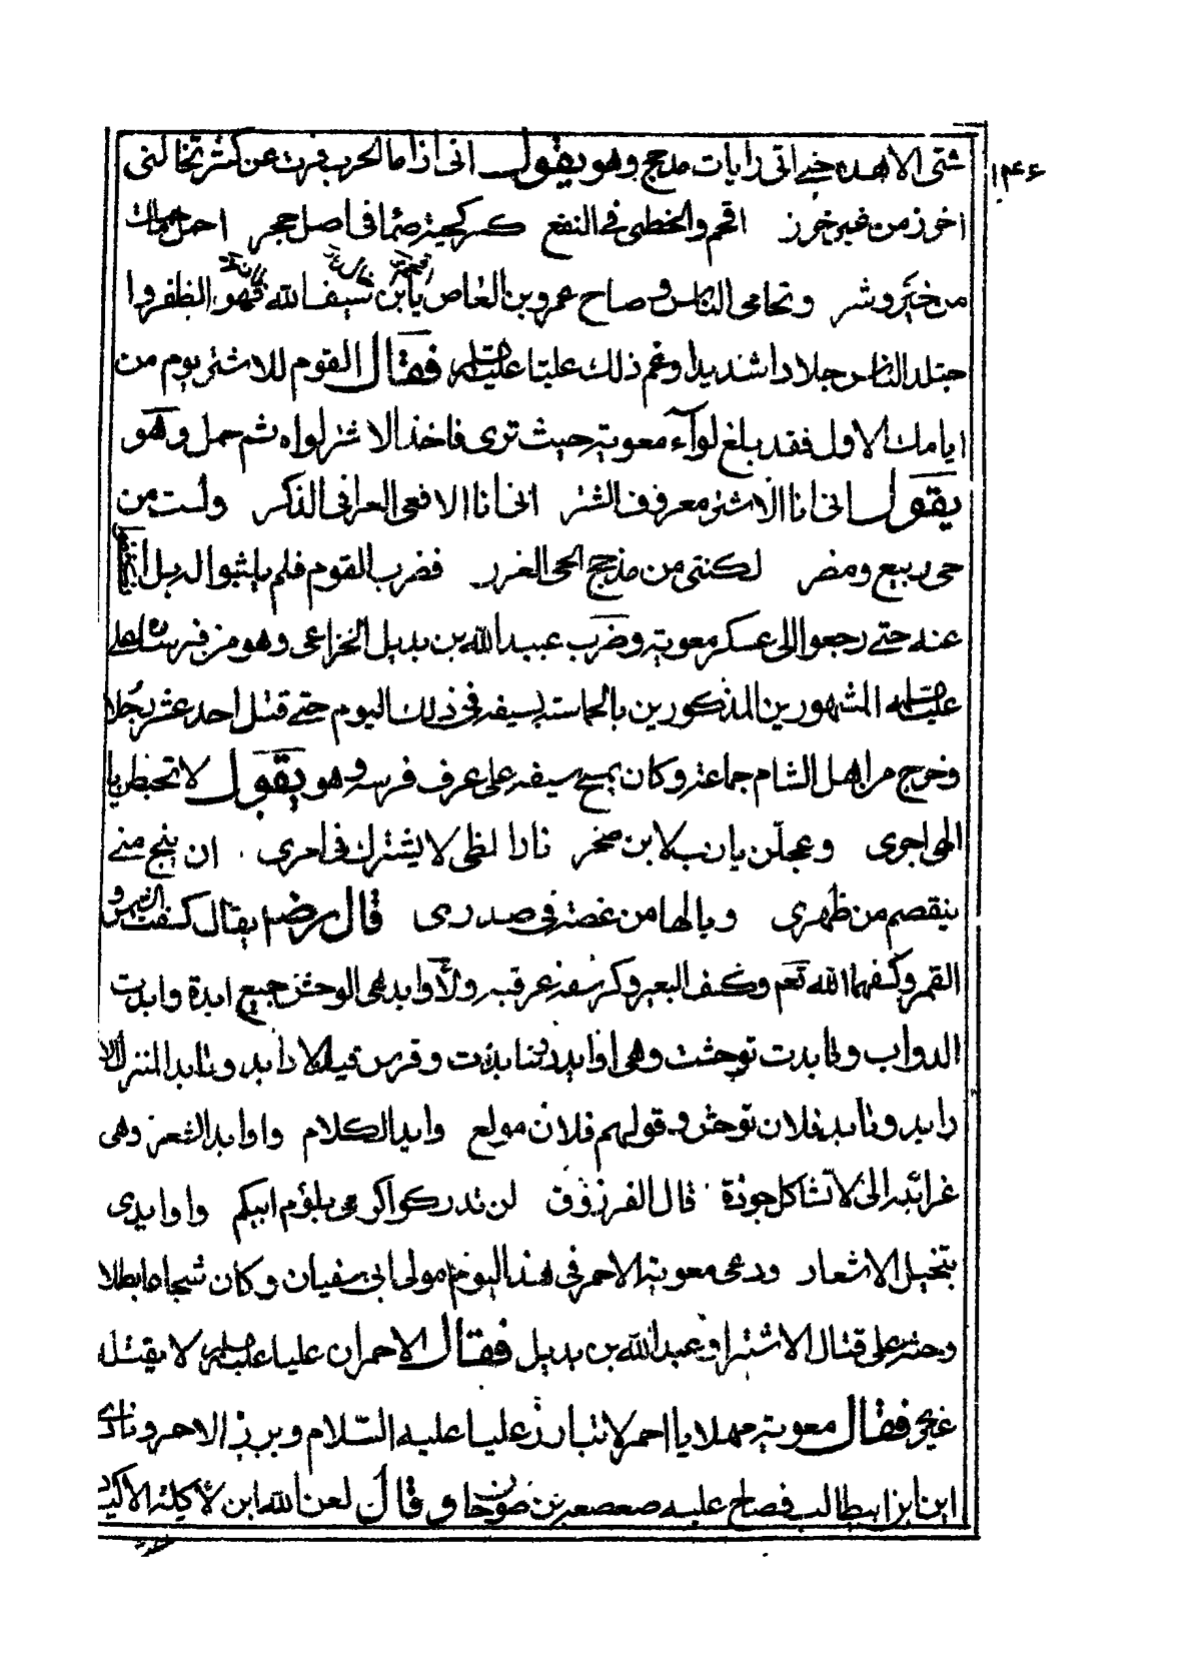 ١٣٤٤
شتى الا هده حتى اتى رايات مذحج وهو يقول انى اذا ما الحرب فرت عن كشر تخالنى
اخوز من غير خوز اقحم والخطى فى النقع كحية صما فى اصل حجر احمل
من خير وشر وتحامى الناس وصاح عمرو بن العاص يا بن سيف الله فهو الظفر وا
جتلد الناس جلادا شديدا وغم ذلك عليا عليه السلام فقال القوم للاشتر يوم من
ايامك الاول فقد بلغ لوآء معوية حيث ترى فاخذ الاشتر لواه ثم حمل وهو
يقول انى انا الاشتر معروف الشتر انى انا الافعى العراقى الذكر ولست من
حى ربيع ومضر لكننى من مذحج الحى الغرر فضرب القوم فلم يلبثوا
عنه حتى رجعوا الى عسكر معوية وضرب عبد الله بن بديل الخزاعى وهو من فرسان على
عليه السلام المشهورين المذكورين بالحماسة بسيفه فى ذلك اليوم حتى قتل احد عشر رجلا
وخرج من اهل الشام جماعة وكان يمسح سيفه على عرف فرسه وهو يقول لا تحبطن يا
الهى اجرى وعجلن يا رب لابن صخر نارا لظى لا يشترك فى احرى ان ينج منى
ينقصم من ظهرى ويا لها من غصة فى صدرى قال مرضى يقال كسفت الشمس و
القمر وكسفهما الله تعم وكسف البعير وكرسفه عرقبه والاوابد هى الوحش جميع ابدة وابدت
الدواب وتابدت توحشت وهى اوابد وفرس قيد الاوابد وتابد المنزل الا
وابد وتابد فلان توحش وقولهم فلان مولع وابد الكلام واوابد الشعر وهى
غرائبه التى لا تشاكل جودة قال الفرزدق لن تدركوا كرمى بلؤم ابيكم واوابدى
بتنخل الاشعار ودعى معوية الاحمر فى هذا اليوم مولى ابى سفيان وكان شجاعا بطلا
وحثه على قتال الاشتر او عبد الله بن بديل فقال الاحمر ان عليا عليه السلام لا يقتله
غيرى فقال معوية مهلا يا احمر لا تبارز عليا عليه السلام وبرز الاحمر ونادى
اين ابن ابيطالب فصاح عليه صعصعة بن صوحان وقال لعن الله ابن لأكلة الاكباد